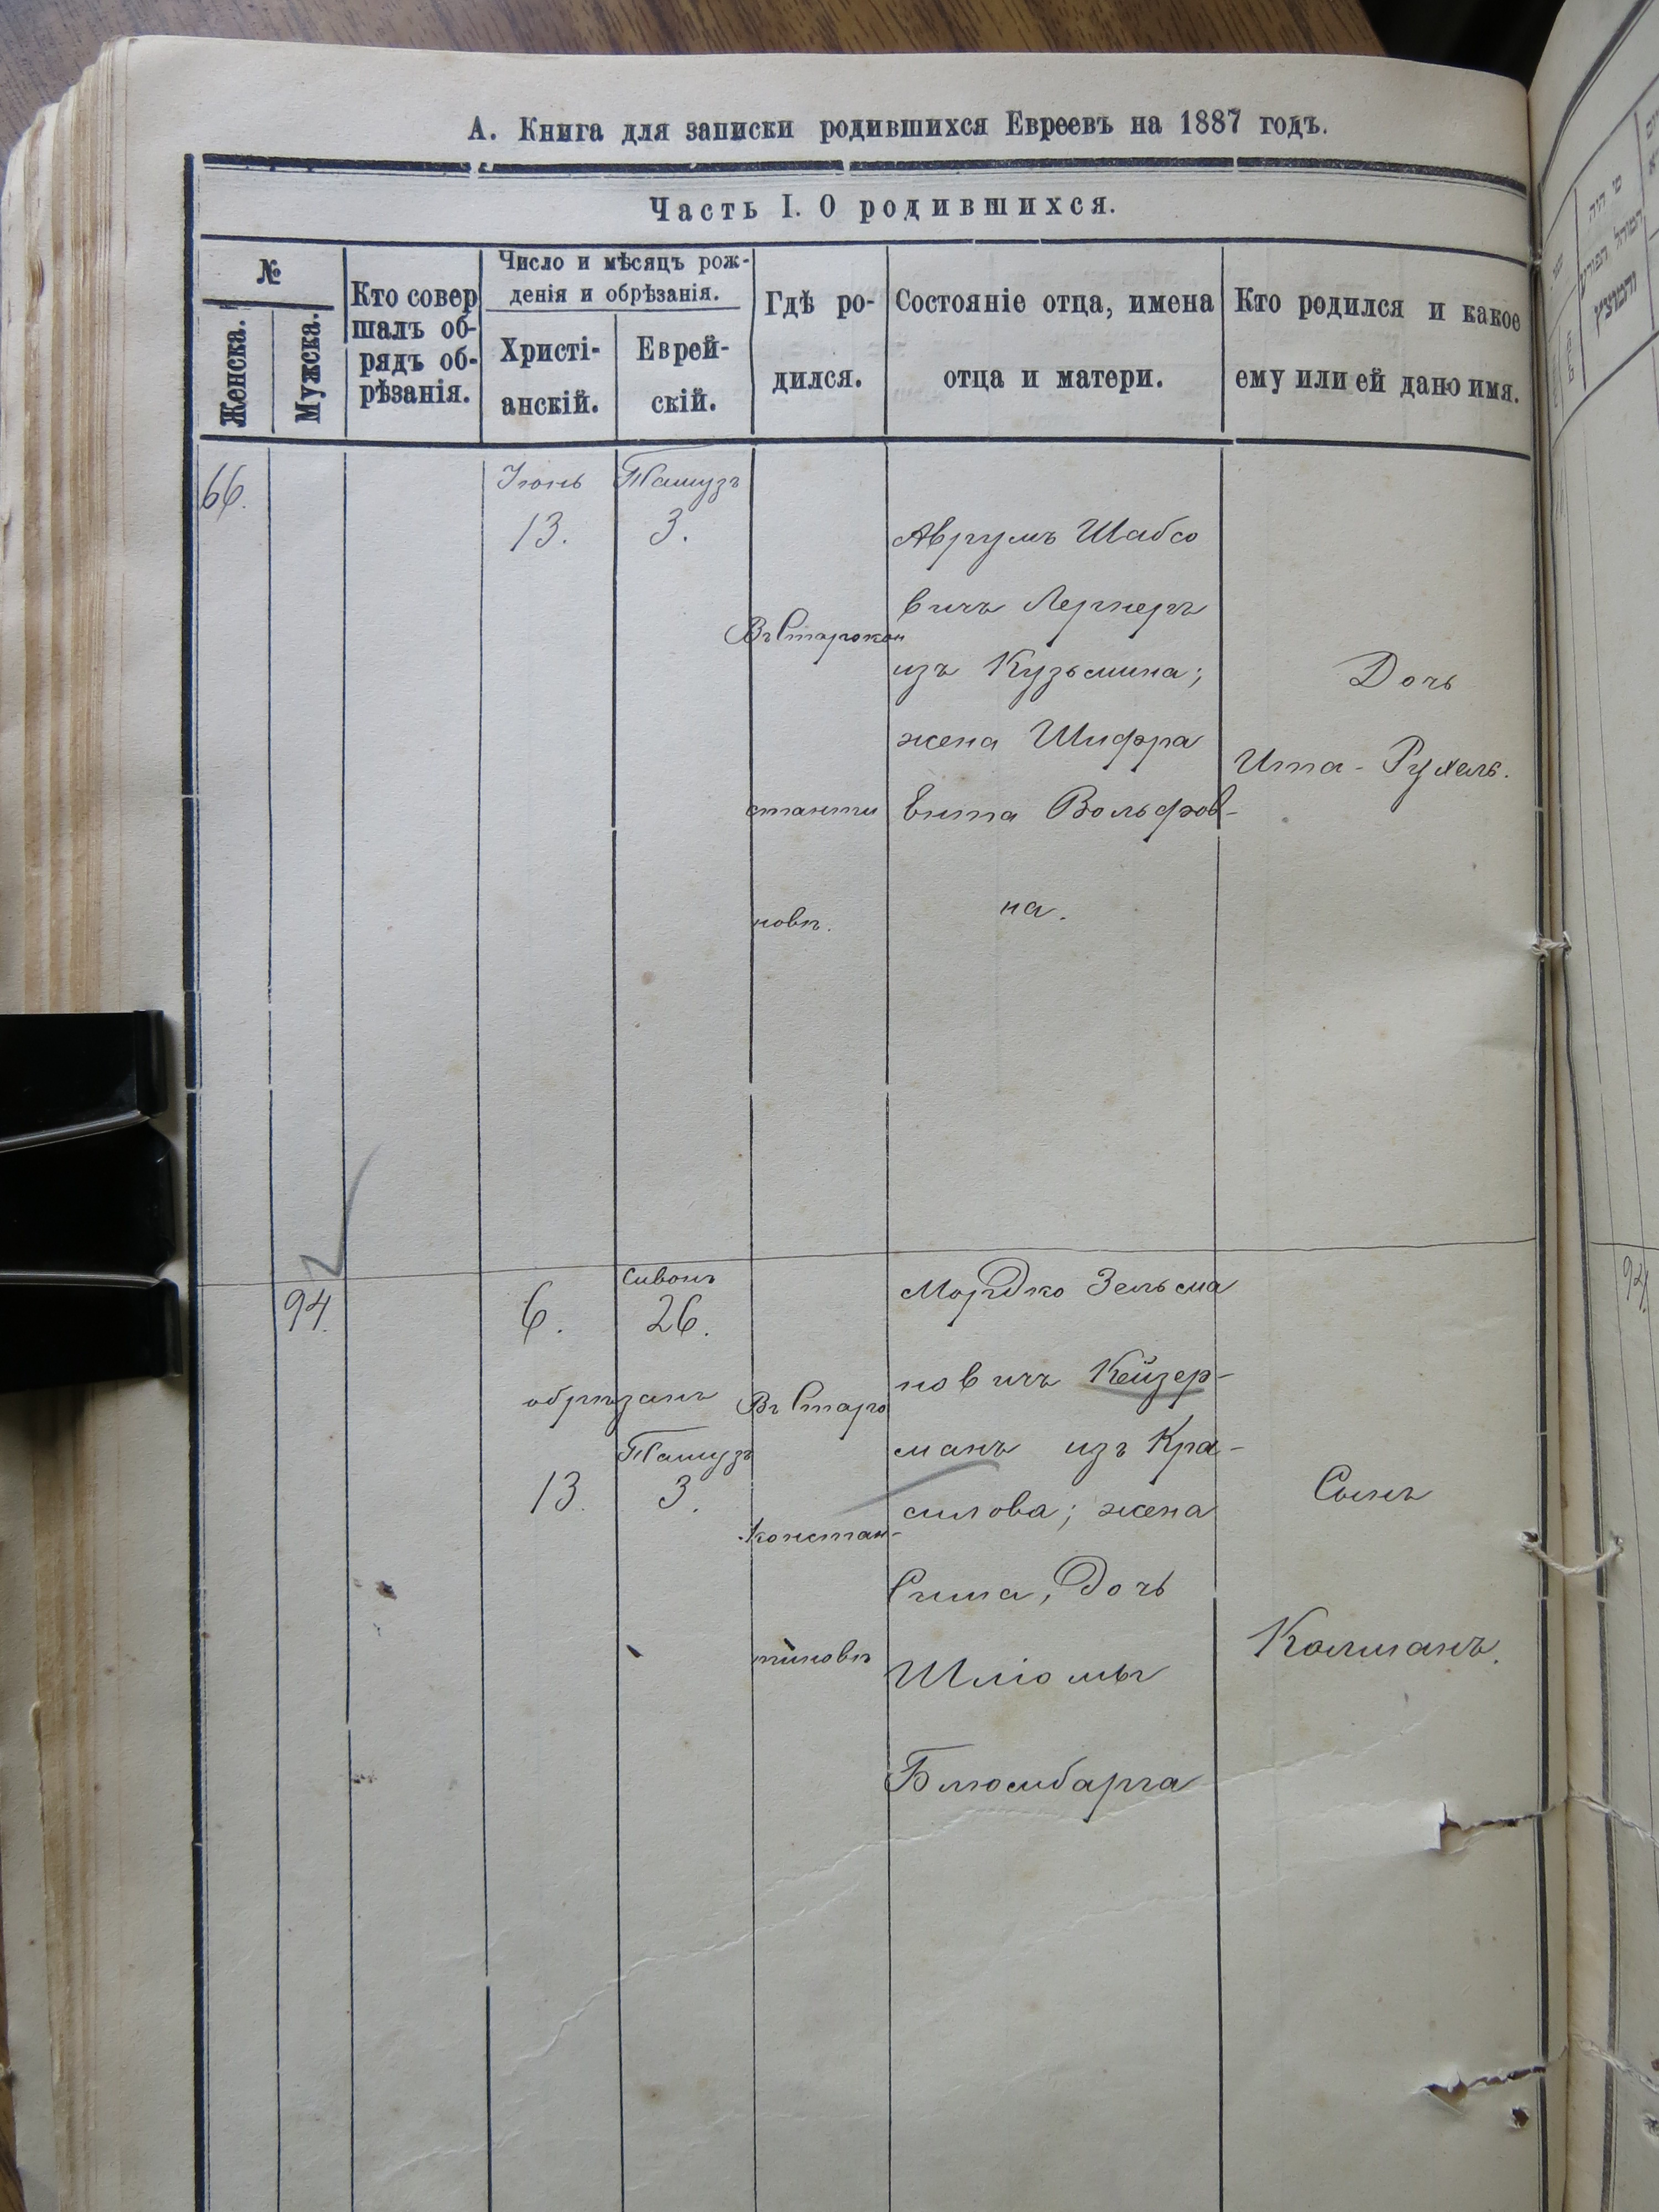 А. Книга для записки родившихся Евреевъ на 1887 годъ.
Часть I. О родившихся.
№
Женска.
Мужска.
Кто совер
шалъ об-
рядъ об-
рѣзанія.
Число и мѣсяцъ рож-
денія и обрѣзанія.
Христі-
анскій.
Еврей-
скій.
Гдѣ ро-
дился.
Состояніе отца, имена
отца и матери.
Кто родился и какое
ему или ей дано имя.
66.
Іюнь
13.
Тамузъ
3.
Въ Старокон
станти
новѣ.
Аврумъ Шабсо
вичъ Лернеръ
изъ Кузьмина;
жена Шифра
Ента Вольфов-
на.
Дочь
Ита-Рухель.
94.
6.
Сивонъ
26.
обрѣзанъ
13.
Тамузъ
3.
Въ Старо
констан-
тиновѣ
Мордко Зельма
новичъ Кейзер-
манъ изъ Кра-
силова; жена
Сима, дочь
Шліомы
Блюмбарга
Сынъ
Калманъ.
94.